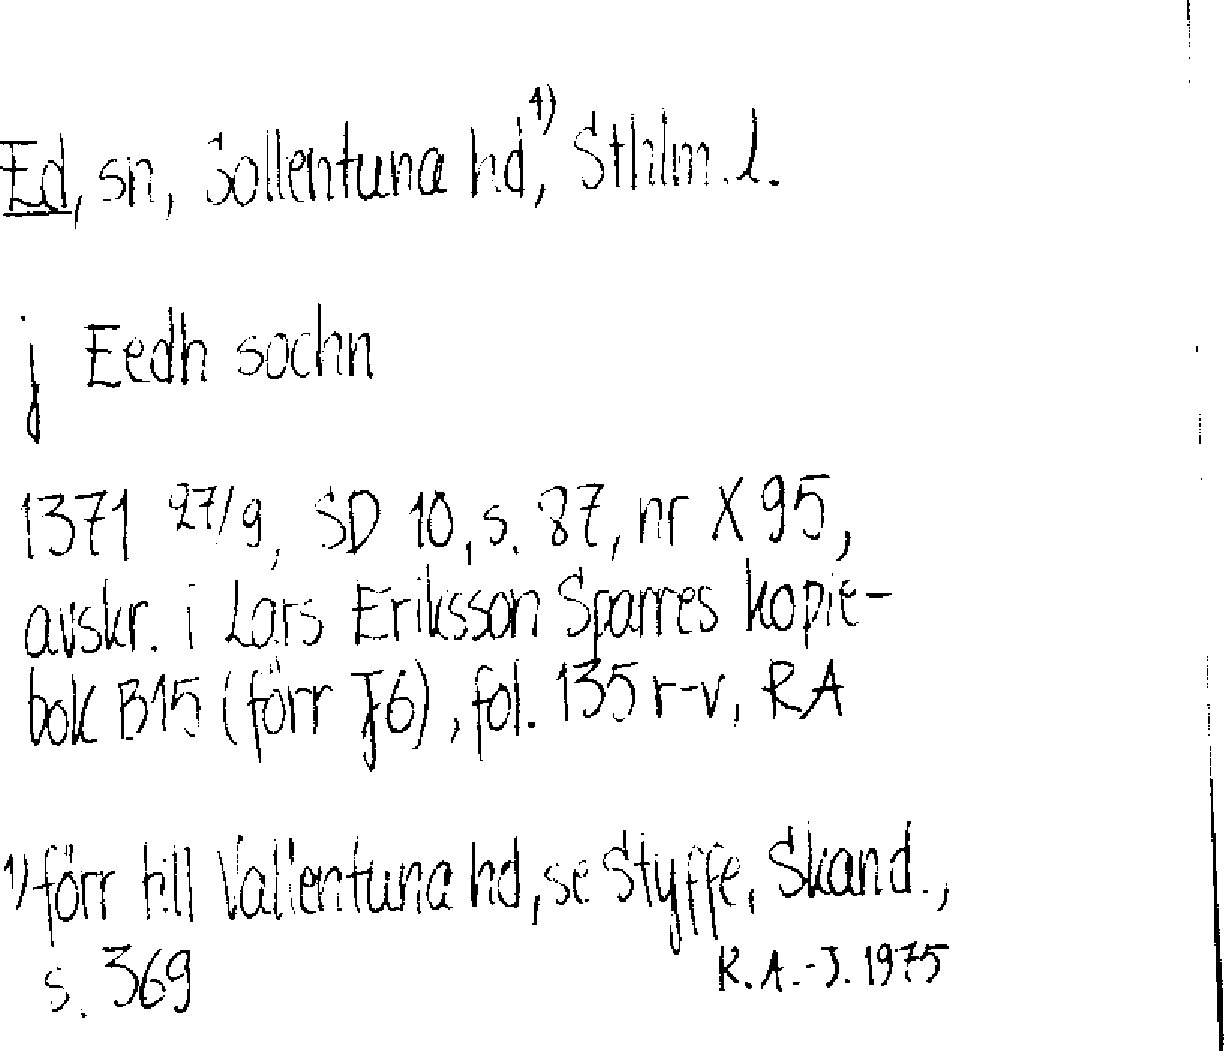 Ed, sn, Sollentuna hd,¹⁾ Sthlm. l.
j Eedh sochn
1371 27/9, SD 10, s. 87, nr X 95,
avskr. i Lars Eriksson Sparres kopie-
bok B15 (förr J6), fol. 135 r-v, RA
1) förr till Vallentuna hd, se Styffe, Skand.,
s. 369
R.A.-J. 1975